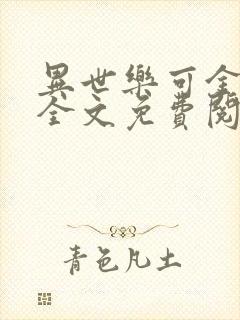 異世樂可全
全文免費閱
青色凡土